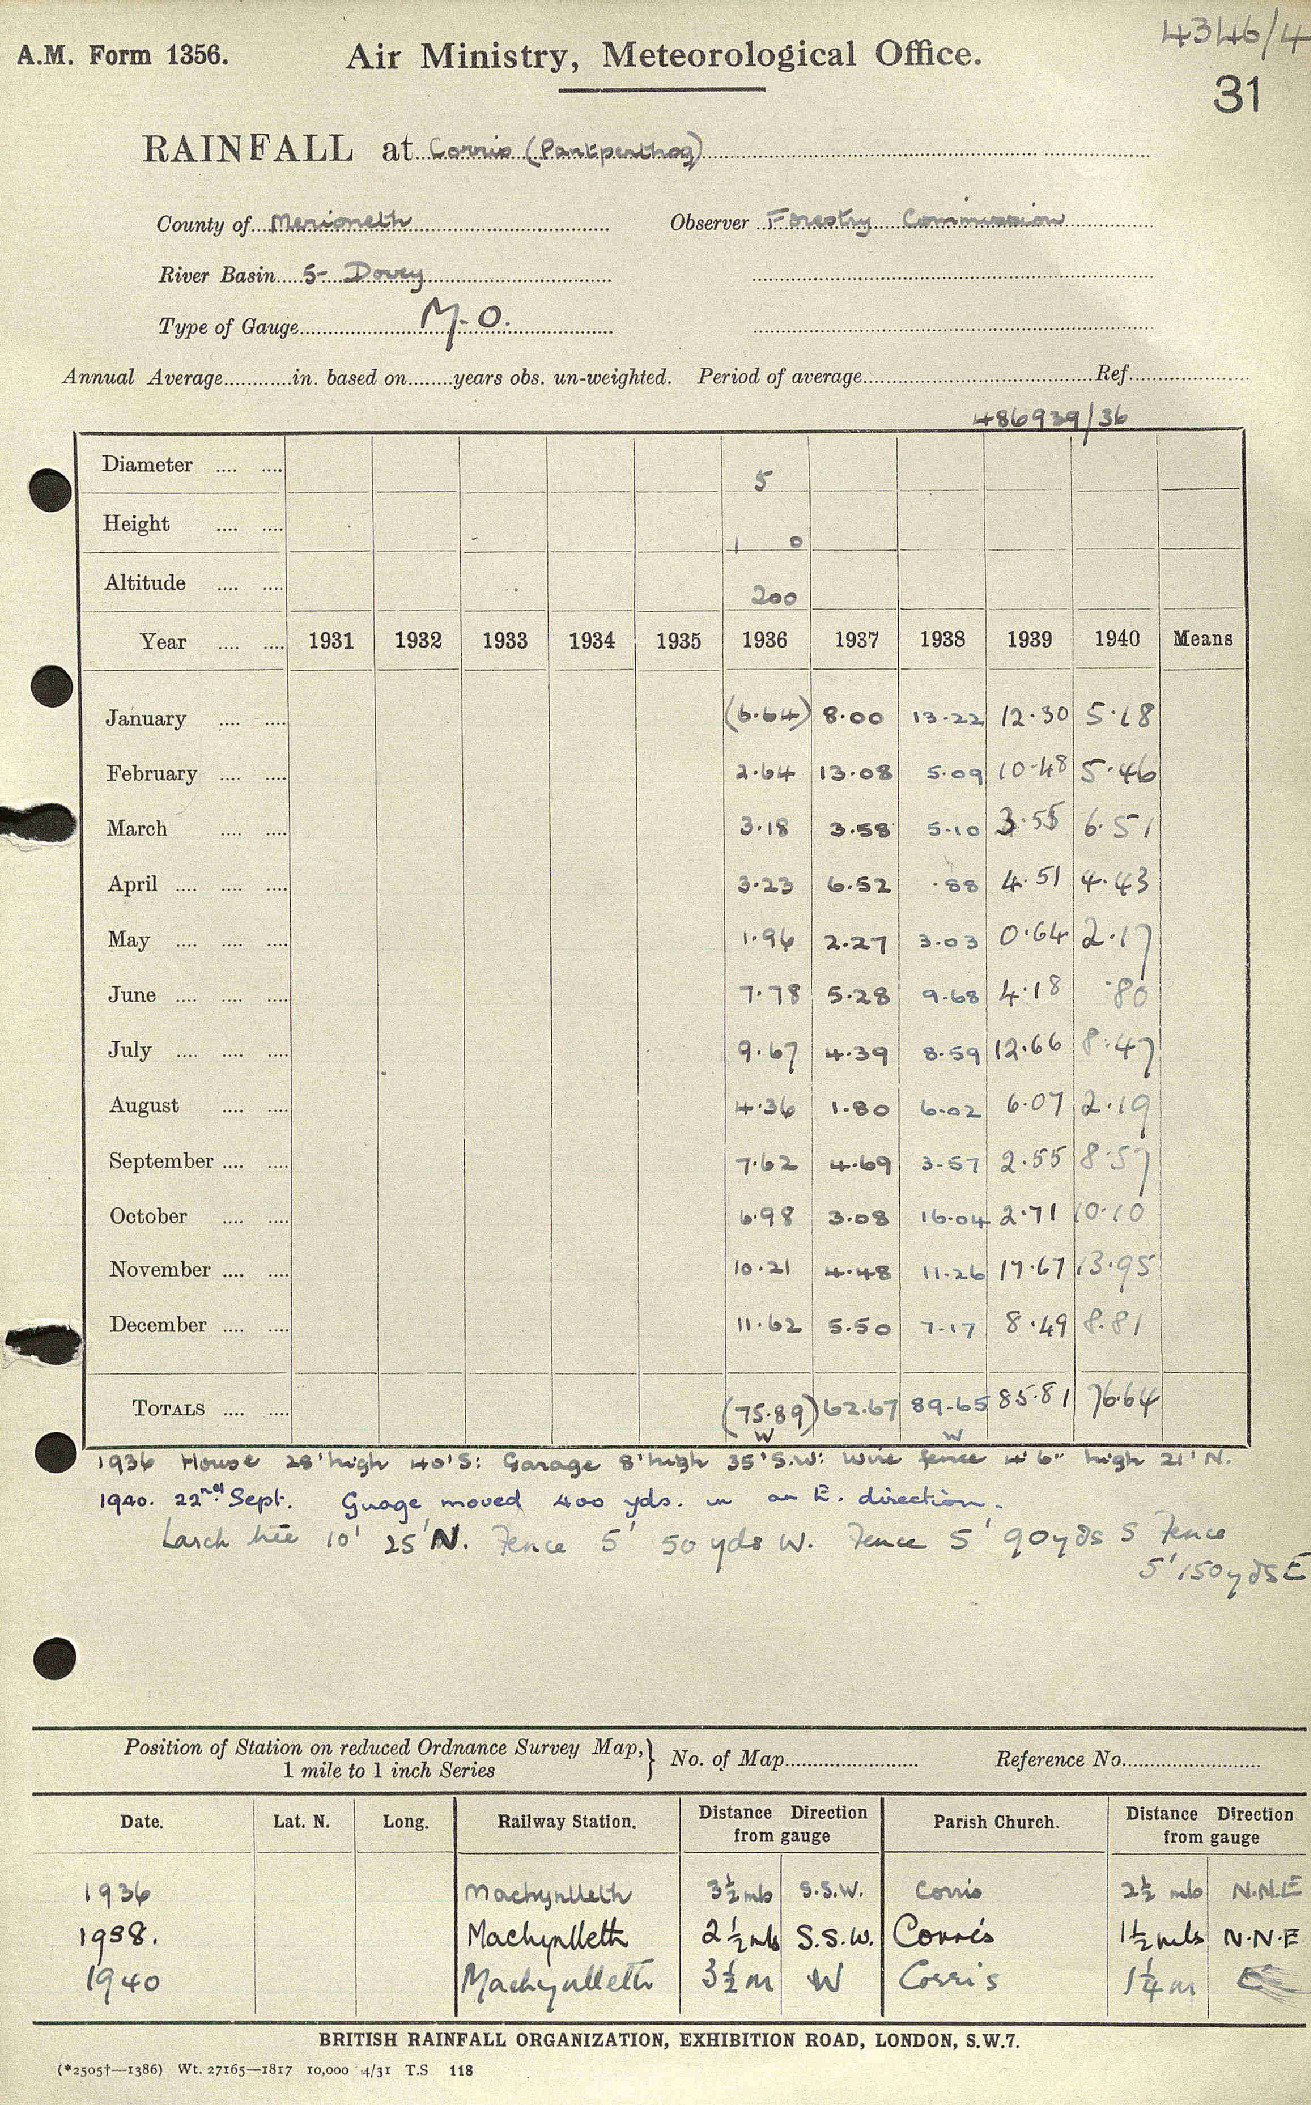 4346/4
A.M. Form 1356. Air Ministry, Meteorological Office.
31
RAINFALL at Corris (Pantperthog)
County of Merioneth Observer Forestry Commission
River Basin 5- Dovey
Type of Gauge M.O.
Annual Average in. based on years obs. un-weighted. Period of average Ref.
486939/36
Diameter 5
Height 1 0
Altitude 200
Year 1931 1932 1933 1934 1935 1936 1937 1938 1939 1940 Means
January (6.64) 8.00 13.22 12.30 5.18
February 2.64 13.08 5.09 10.48 5.46
March 3.18 3.58 5.10 3.55 6.51
April 3.23 6.52 .88 4.51 4.43
May 1.96 2.27 3.03 0.64 2.17
June 7.78 5.28 9.68 4.18 .80
July 9.67 4.39 8.59 12.66 8.47
August 4.36 1.80 6.02 6.07 2.19
September 7.62 4.69 3.57 2.55 8.57
October 6.98 3.08 16.04 2.71 10.10
November 10.21 4.48 11.26 17.67 13.95
December 11.62 5.50 7.17 8.49 8.81
TOTALS (75.89) 62.67 89.65 85.81 76.64
W W
1936 House 28' high 40' S: Garage 8' high 35' S.W: Wire fence 4' 6" high 21' N.
1940. 22nd Sept. Guage moved 400 yds. in an E. direction.
Larch tree 10' 25' N. Fence 5' 50 yds W. Fence 5' 90 yds S Fence
5' 150 yds E
Position of Station on reduced Ordnance Survey Map, 1 mile to 1 inch Series } No. of Map Reference No.
Date. Lat. N. Long. Railway Station. Distance Direction from gauge Parish Church. Distance Direction from gauge
1936 Machynlleth 3½ mls S.S.W. Corris 2½ mls N.N.E
1938. Machynlleth 2½ mls S.S.W. Corris 1½ mls N.N.E
1940 Machynlleth 3½ m W Corris 1¼ m
BRITISH RAINFALL ORGANIZATION, EXHIBITION ROAD, LONDON, S.W.7.
(*2505†—1386) Wt. 27165—1817 10,000 4/31 T.S 118